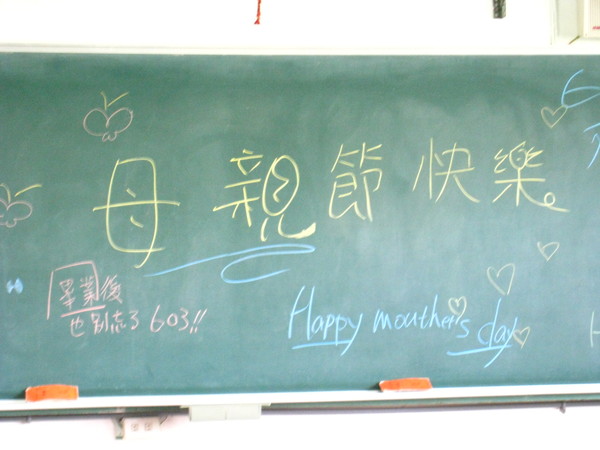 母親節快樂。
畢業後
也別忘了603!!
Happy mouther's day